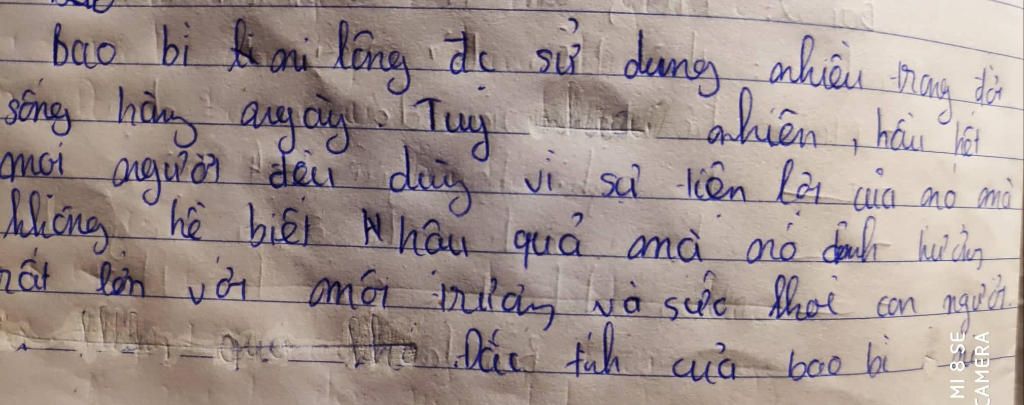 bao bì ni lông đc sử dụng nhiều trong đời
sống hàng ngày. Tuy nhiên, hầu hết
mọi người đều dùng vì sự tiện lợi của nó mà
không hề biết hậu quả mà nó ảnh hưởng
rất lớn với môi trường và sức khoẻ con người.
Đặc tính của bao bì
MI 8 SE
CAMERA